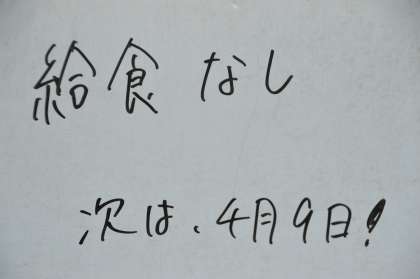 給食 なし
次は、4月9日!